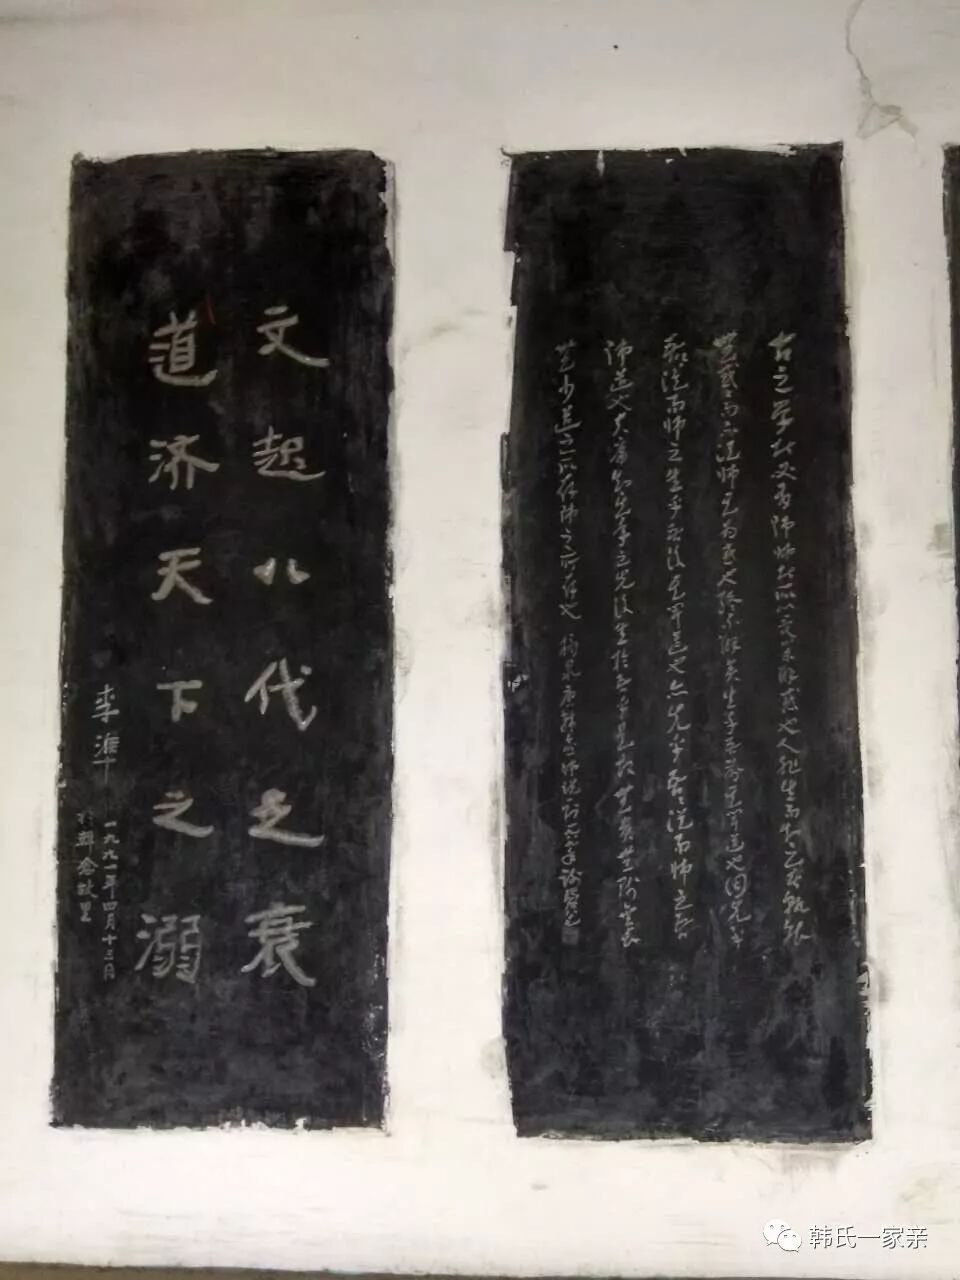 古之学者必有师师者所以受业解惑也人非生而知之者孰能
无惑惑而不从师其为惑也终不解矣生乎吾前其闻道也固先乎
吾从而师之生乎吾后其闻道也亦先乎吾吾从而师之吾
师道也夫庸知其年之先后生于吾乎是故无贵无贱无长
无少道之所存师之所存也
文起八代之衰
道济天下之溺
李
一九九一年四月十三日
于韩愈故里
韩氏一家亲